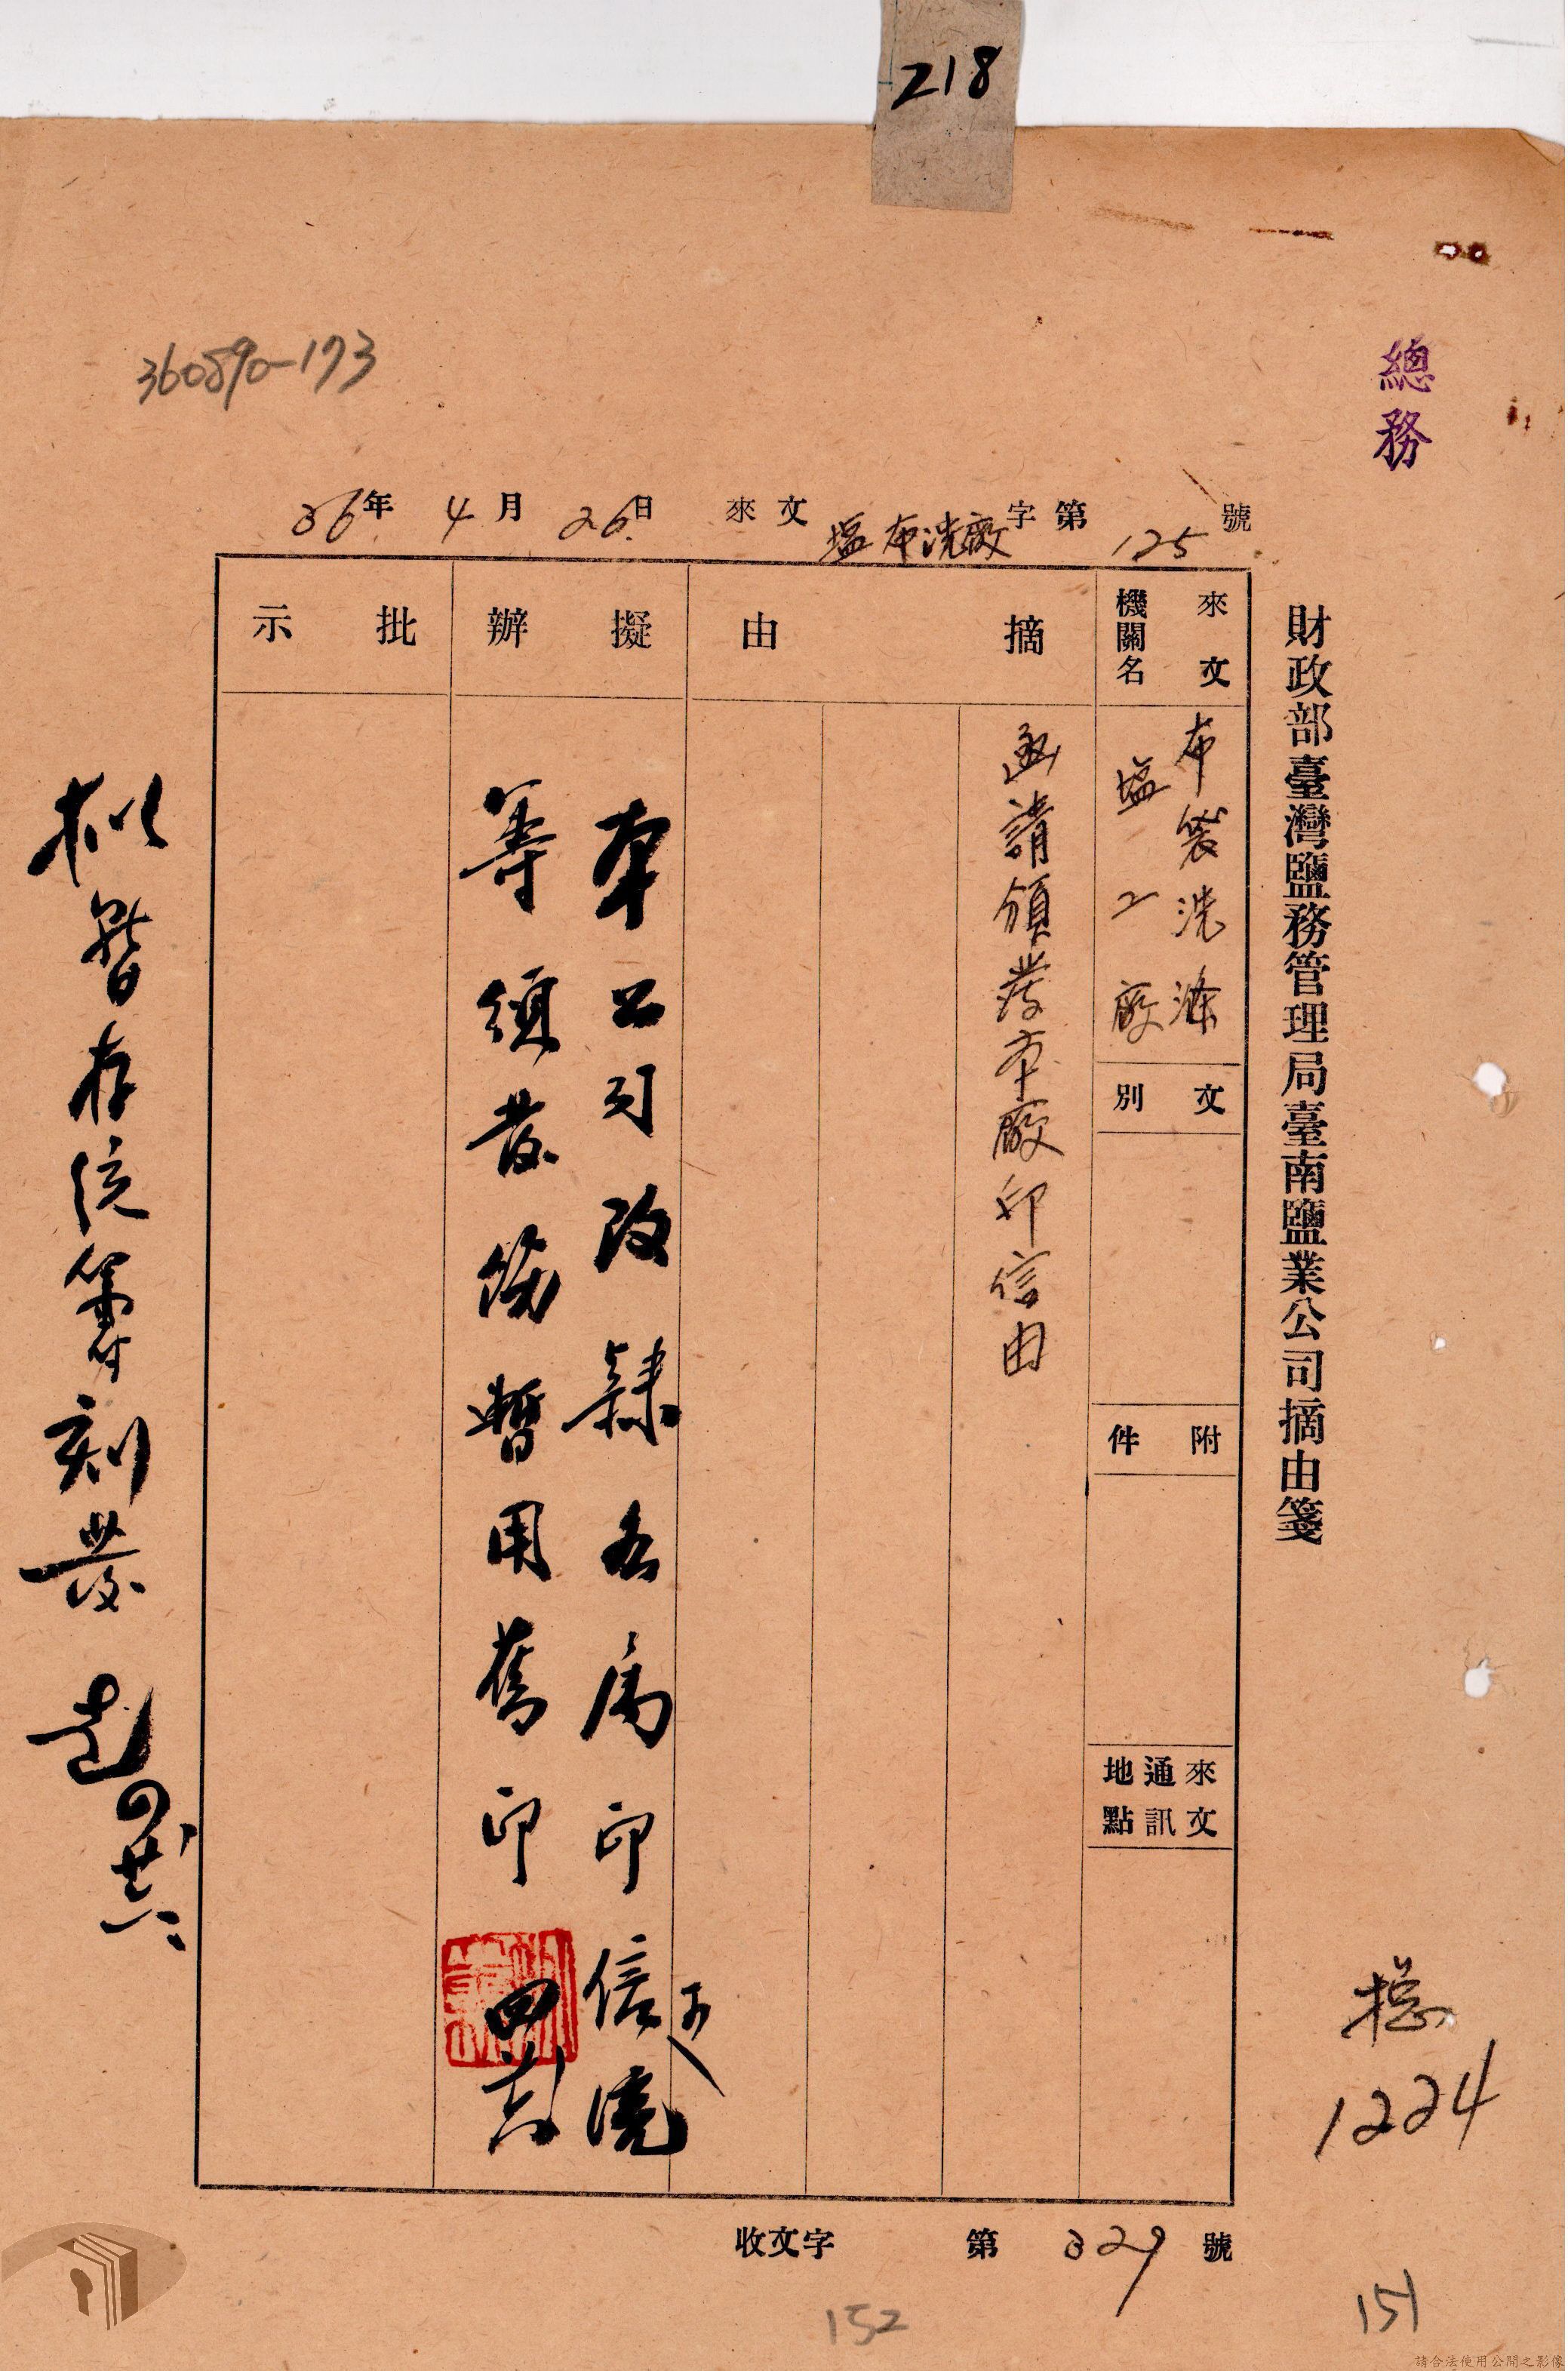 218
360890-173
總務
36年4月26日 來文 塩布洗廠字第125號
財政部臺灣鹽務管理局臺南鹽業公司摘由箋
來文機關名
布袋洗滌
塩工廠
文別
附件
來文通訊地點
摘由
函請頒發本廠印信由
擬辦
本公司改隸各屬印信
等頒發
暫用舊印
四
批示
擬暫存
刻發
收文字第329號
總
1224
151
152
請合法使用公開之影像